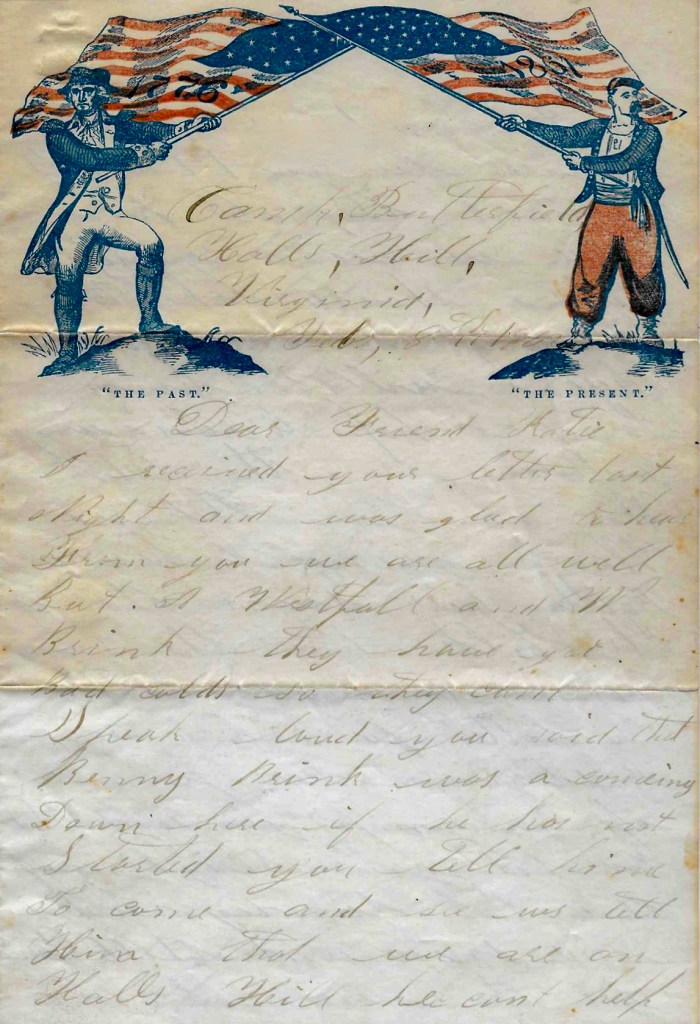 1776
1861
Camp, Butterfield
Halls, Hill,
Virginia,
"THE PAST."
"THE PRESENT."
Dear Friend Katie
I received your letter last
Night and was glad to hear
From you we are all well
But A Westfall and Wm
Brink they have got
Bad colds so they cant
Speak loud you said that
Benny Brink was a comeing
Down here if he has not
Started you tell hime
To come and see us tell
Him that we are on
Halls Hill he cant help